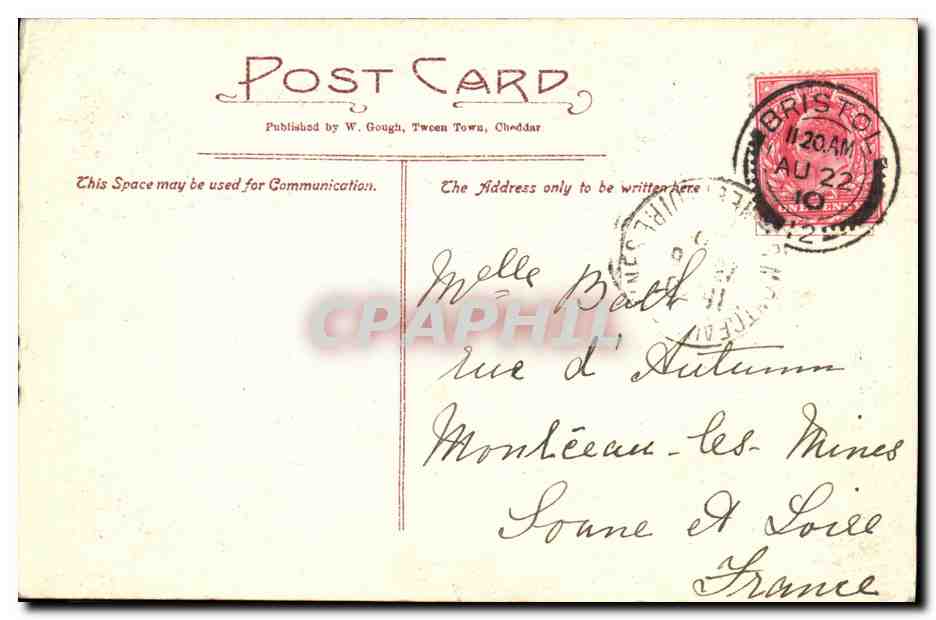 POST CARD
Published by W. Gough, Tween Town, Cheddar
This Space may be used for Communication.
The Address only to be written here
BRISTOL
11 20.AM
AU 22
10
12
ONE PENNY
MONTCEAU
CPAPHIL
Melle Bath
rue d' Autumn
Montceau-les-Mines
Soune et Loire
France